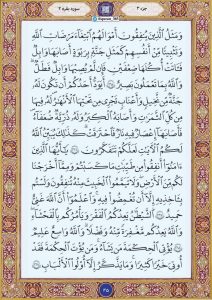 جزء ۳
سوره بقره ۲
وَمَثَلُ الَّذِينَ يُنْفِقُونَ أَمْوَالَهُمُ ابْتِغَاءَ مَرْضَاتِ اللَّهِ
وَتَثْبِيتًا مِنْ أَنْفُسِهِمْ كَمَثَلِ جَنَّةٍ بِرَبْوَةٍ أَصَابَهَا وَابِلٌ
فَآتَتْ أُكُلَهَا ضِعْفَيْنِ فَإِنْ لَمْ يُصِبْهَا وَابِلٌ فَطَلٌّ
وَاللَّهُ بِمَا تَعْمَلُونَ بَصِيرٌ أَيَوَدُّ أَحَدُكُمْ أَنْ تَكُونَ لَهُ
جَنَّةٌ مِنْ نَخِيلٍ وَأَعْنَابٍ تَجْرِي مِنْ تَحْتِهَا الْأَنْهَارُ لَهُ فِيهَا
مِنْ كُلِّ الثَّمَرَاتِ وَأَصَابَهُ الْكِبَرُ وَلَهُ ذُرِّيَّةٌ ضُعَفَاءُ
فَأَصَابَهَا إِعْصَارٌ فِيهِ نَارٌ فَاحْتَرَقَتْ كَذَلِكَ يُبَيِّنُ اللَّهُ
لَكُمُ الْآيَاتِ لَعَلَّكُمْ تَتَفَكَّرُونَ يَا أَيُّهَا الَّذِينَ
آمَنُوا أَنْفِقُوا مِنْ طَيِّبَاتِ مَا كَسَبْتُمْ وَمِمَّا أَخْرَجْنَا
لَكُمْ مِنَ الْأَرْضِ وَلَا تَيَمَّمُوا الْخَبِيثَ مِنْهُ تُنْفِقُونَ وَلَسْتُمْ
بِآخِذِيهِ إِلَّا أَنْ تُغْمِضُوا فِيهِ وَاعْلَمُوا أَنَّ اللَّهَ غَنِيٌّ
حَمِيدٌ الشَّيْطَانُ يَعِدُكُمُ الْفَقْرَ وَيَأْمُرُكُمْ بِالْفَحْشَاءِ
وَاللَّهُ يَعِدُكُمْ مَغْفِرَةً مِنْهُ وَفَضْلًا وَاللَّهُ وَاسِعٌ عَلِيمٌ
يُؤْتِي الْحِكْمَةَ مَنْ يَشَاءُ وَمَنْ يُؤْتَ الْحِكْمَةَ فَقَدْ
أُوتِيَ خَيْرًا كَثِيرًا وَمَا يَذَّكَّرُ إِلَّا أُولُو الْأَلْبَابِ
۴۵